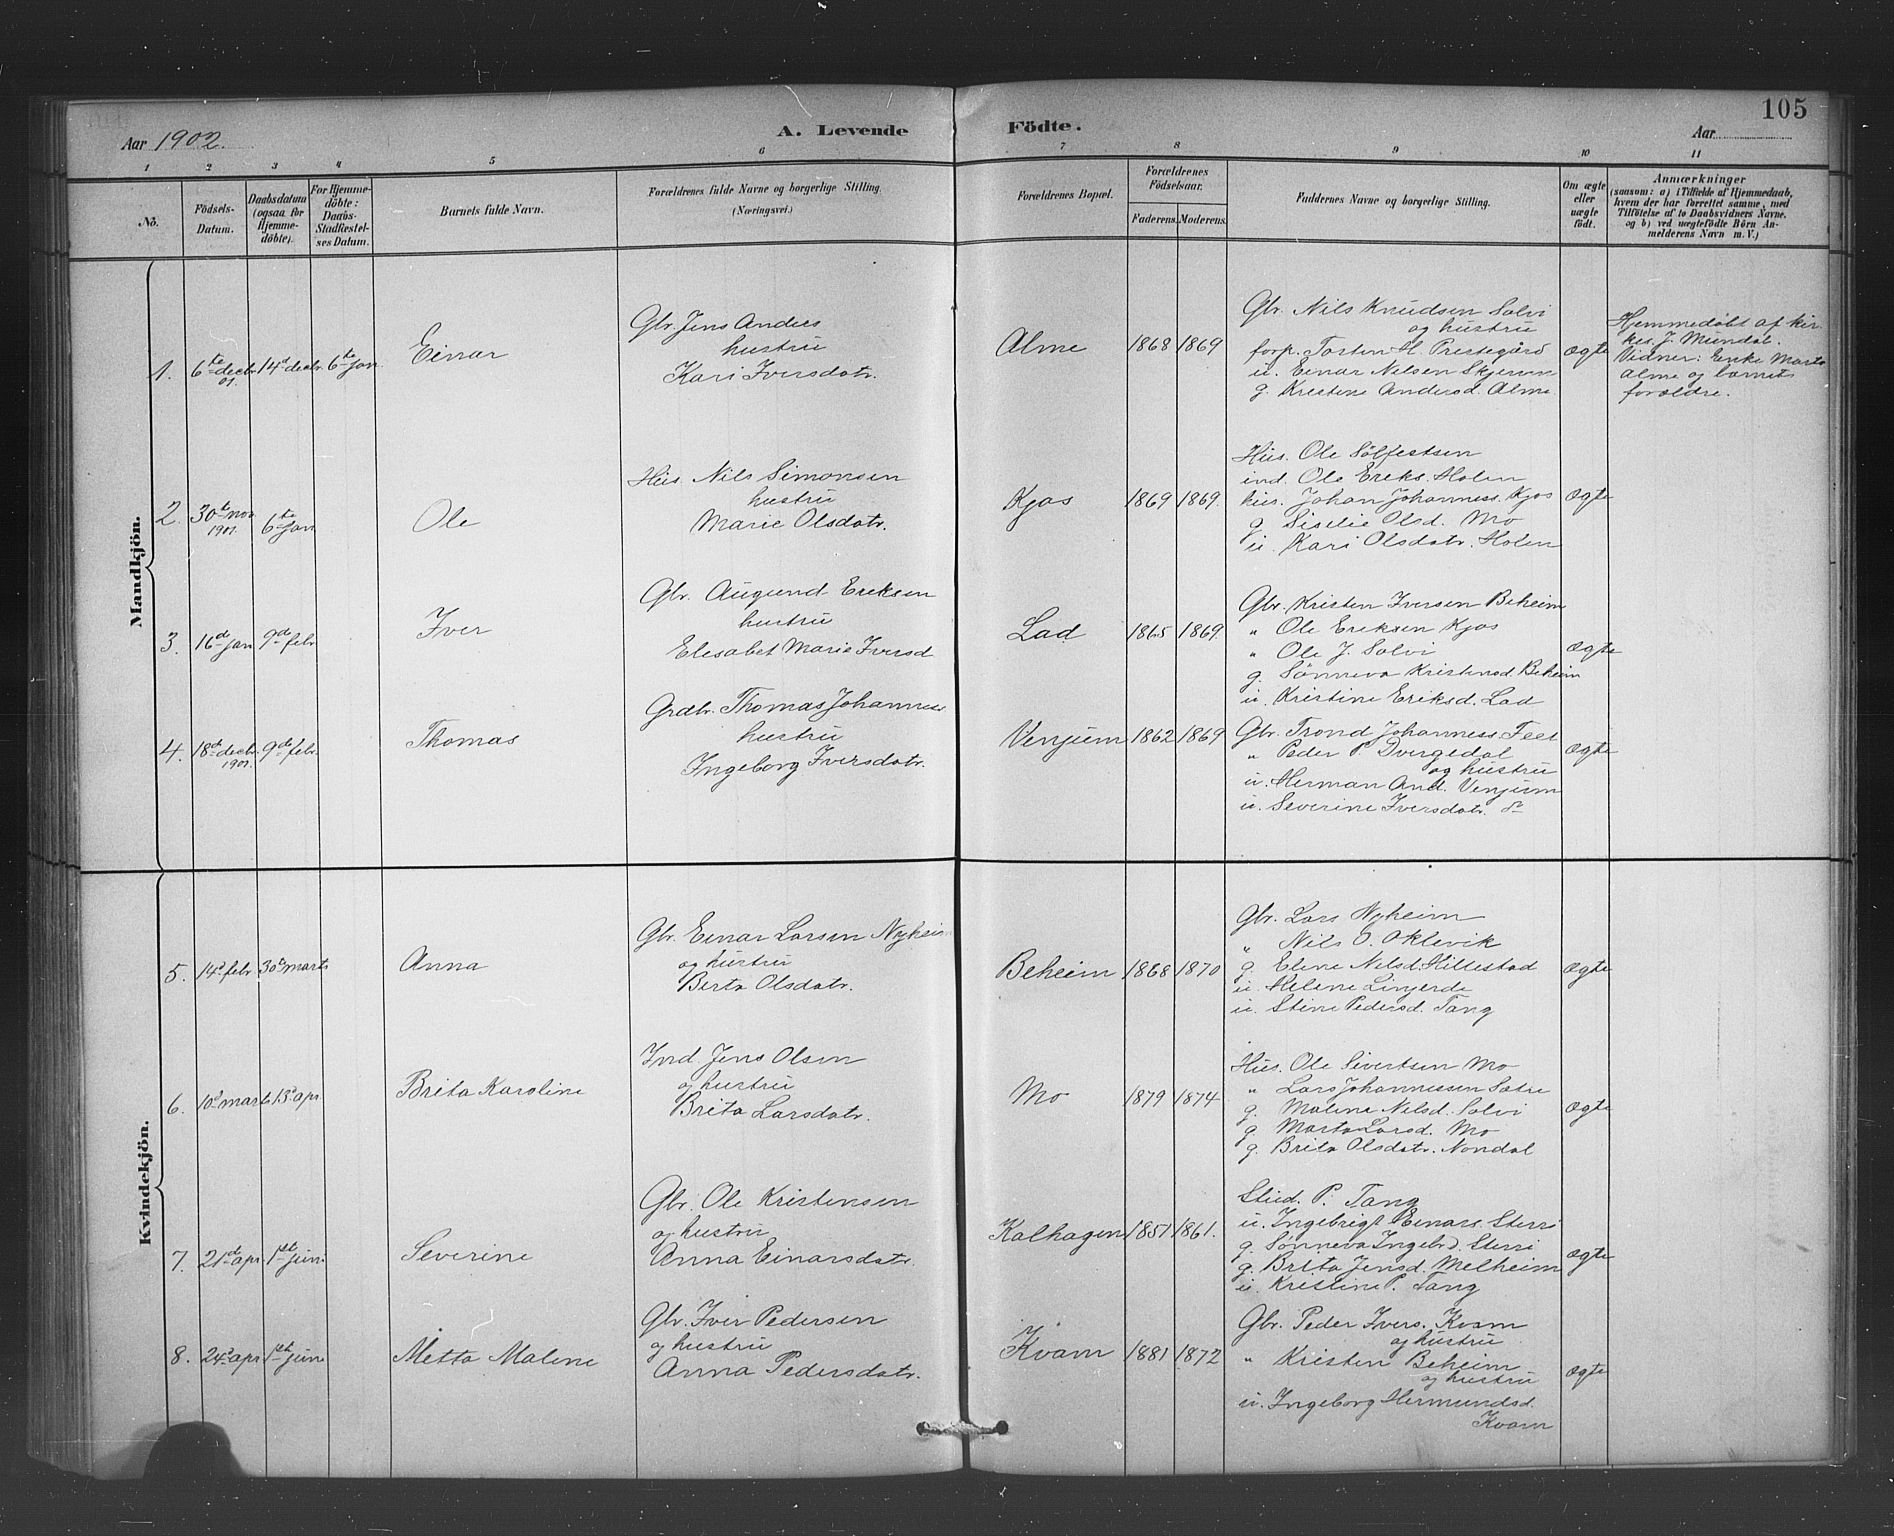 105
Aar 1902.
A. Levende Födte.
Aar
1 2 3 4 5 6 7 8 9 10 11
No.
Födsels-Datum.
Daabsdatum (ogsaa for Hjemme-döbte).
For Hjemme-döbte: Daabs-Stadfæstel-ses Datum.
Barnets fulde Navn.
Forældrenes fulde Navne og borgerlige Stilling. (Næringsvei.)
Forældrenes Bopæl.
Forældrenes Födselsaar.
Faderens. Moderens.
Faddernes Navne og borgerlige Stilling.
Om ægte eller uægte födt.
Anmærkninger (saasom: a) i Tilfælde af Hjemmedaab, hvem der har forrettet samme, med Tilföielse af to Daabsvidners Navne, og b) ved uægtefödte Börn An-melderens Navn m. V.)
Mandkjön.
1. 6te decbr. 01. 14d decbr. 6te jan
Einar
Gbr. Jens Anders
hustru
Kari Iversdatr.
Alme 1868 1869
Gbr. Nils Knudsen Solvi
og hustru
forp. Torsten H. Prestegård
u. Einar Nilsen Skjerven
g. Kristine Andersd. Alme
ægte
Hjemmedøbt af kir-
kes. J. Mundal.
Vidner: Enke Marta
Alme og barnets
forældre.
2. 30te nov. 1901. 6te jan
Ole
Hus. Nils Simonsen
hustru
Marie Olsdatr.
Kjos 1869 1869.
Hus. Ole Sølfestsen
ind. Ole Eriks. Holen
hus. Johan Johanness. Kjos
g. Siselie Olsd. Mo
u. Kari Olsdatr. Holen
ægte
3. 16d jan 9de febr
Iver
Gbr. Augund Eriksen
hustru
Elisabet Marie Iversd
Lad 1865 1869.
Gbr. Kristen Iversen Beheim
" Ole Eriksen Kjos
" Ole J. Solvi
g. Sønneva Kristensd. Beheim
u. Kristine Eriksd. Lad
ægte
4. 18de decbr. 1901. 9de febr
Thomas
Grdbr. Thomas Johanness
hustru
Ingeborg Iversdatr.
Venjum 1862 1869
Gbr. Trond Johanness. Feet
" Peder P. Dvergedal
og hustru
u. Herman And. Venjum
u. Severine Iversdatr. do
ægte
Kvindekjön.
5. 14d febr 30te marts
Anna
Gbr. Einar Larsen Nyheim
og hustru
Berta Olsdatr.
Beheim 1868 1870
Gbr. Lars Nyheim
" Nils O. Oklevik
g. Eline Nilsd. Hillestad
u. Helene Linjerde
u. Stine Pedersd. Tang
ægte
6. 10d marts 13d apr.
Brita Karoline
Ind. Jens Olsen
og hustru
Brita Larsdatr.
Mo 1879 1874
Hus. Ole Sivertsen Mo
" Lars Johannessen Sætre
g. Maline Nilsd. Solvi
g. Marta Larsd. Mo
g. Brita Olsdatr. Nondal
ægte
7. 21d apr 1ste juni
Severine
Gbr. Ole Kristensen
og hustru
Anna Einarsdatr.
Kalhagen 1851 1861.
Stud. P. Tang
u. Ingebrigt Einars. Sterri
g. Sønneva Ingebr.d. Sterri
g. Brita Jensd. Melheim
u. Kristine P. Tang
ægte
8. 24d apr 1ste juni
Metta Maline
Gbr. Iver Pedersen
og hustru
Anna Pedersdatr.
Kvam 1881 1872
Gbr. Peder Ivers. Kvam
og hustru
" Kristen Beheim
og hustru
u. Ingeborg Hermundsd.
Kvam
ægte